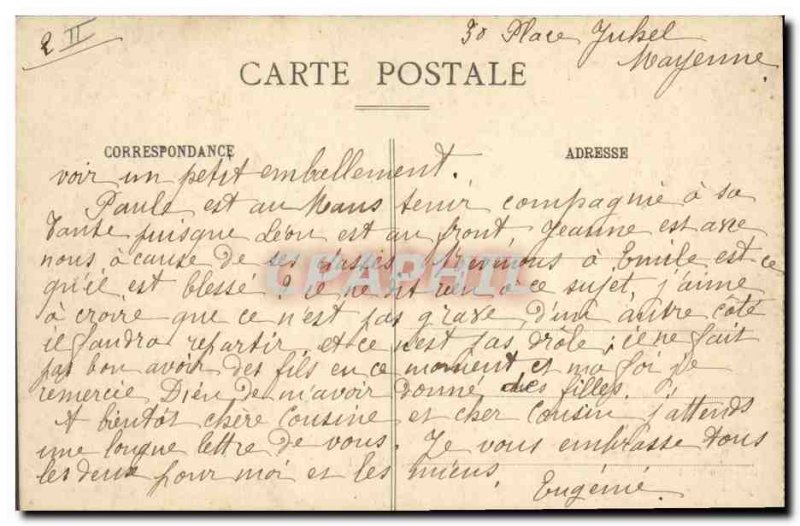 2 II
30 Place Juhel
Mayenne.
CARTE POSTALE
CORRESPONDANCE
ADRESSE
voir un petit embellement.
Paule est au Mans tenir compagnie à sa
tante puisque Léon est au front, Jeanne est avec
nous à cause de ses Revenons à Emile est ce
qu'il est blessé ? il ne dit rien à ce sujet, j'aime
à croire que ce n'est pas grave, d'un autre côté
il faudra repartir et ce n'est pas drôle ; il ne fait
pas bon avoir des fils en ce moment et ma foi je
remercie Dieu de m'avoir donné des filles.
A bientôt chère Cousine et cher Cousin j'attends
une longue lettre de vous. Je vous embrasse tous
les deux pour moi et les miens.
Eugénie.
CPAPHIL